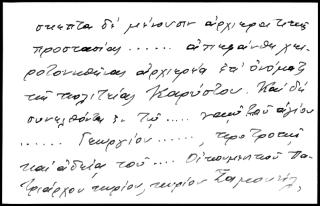 σκηπτα δὲ μένουσιν ἀρχιερατικῆς
προστασίας ...... ἀπεφάνθη χει
ροτονηθῆναι ἀρχιερέα ἐπ' ὀνόματι
τῆς πολιτείας Καρύστου. Καὶ δὴ
συνελθόντες ἐν τῷ .... ναῷ τοῦ ἁγίου
...... Γεωργίου ....., προτροπῇ
καὶ ἀδείᾳ τοῦ .... Οἰκουμενικοῦ Πα
τριάρχου κυρίου, κυρίου Σαμουήλ,